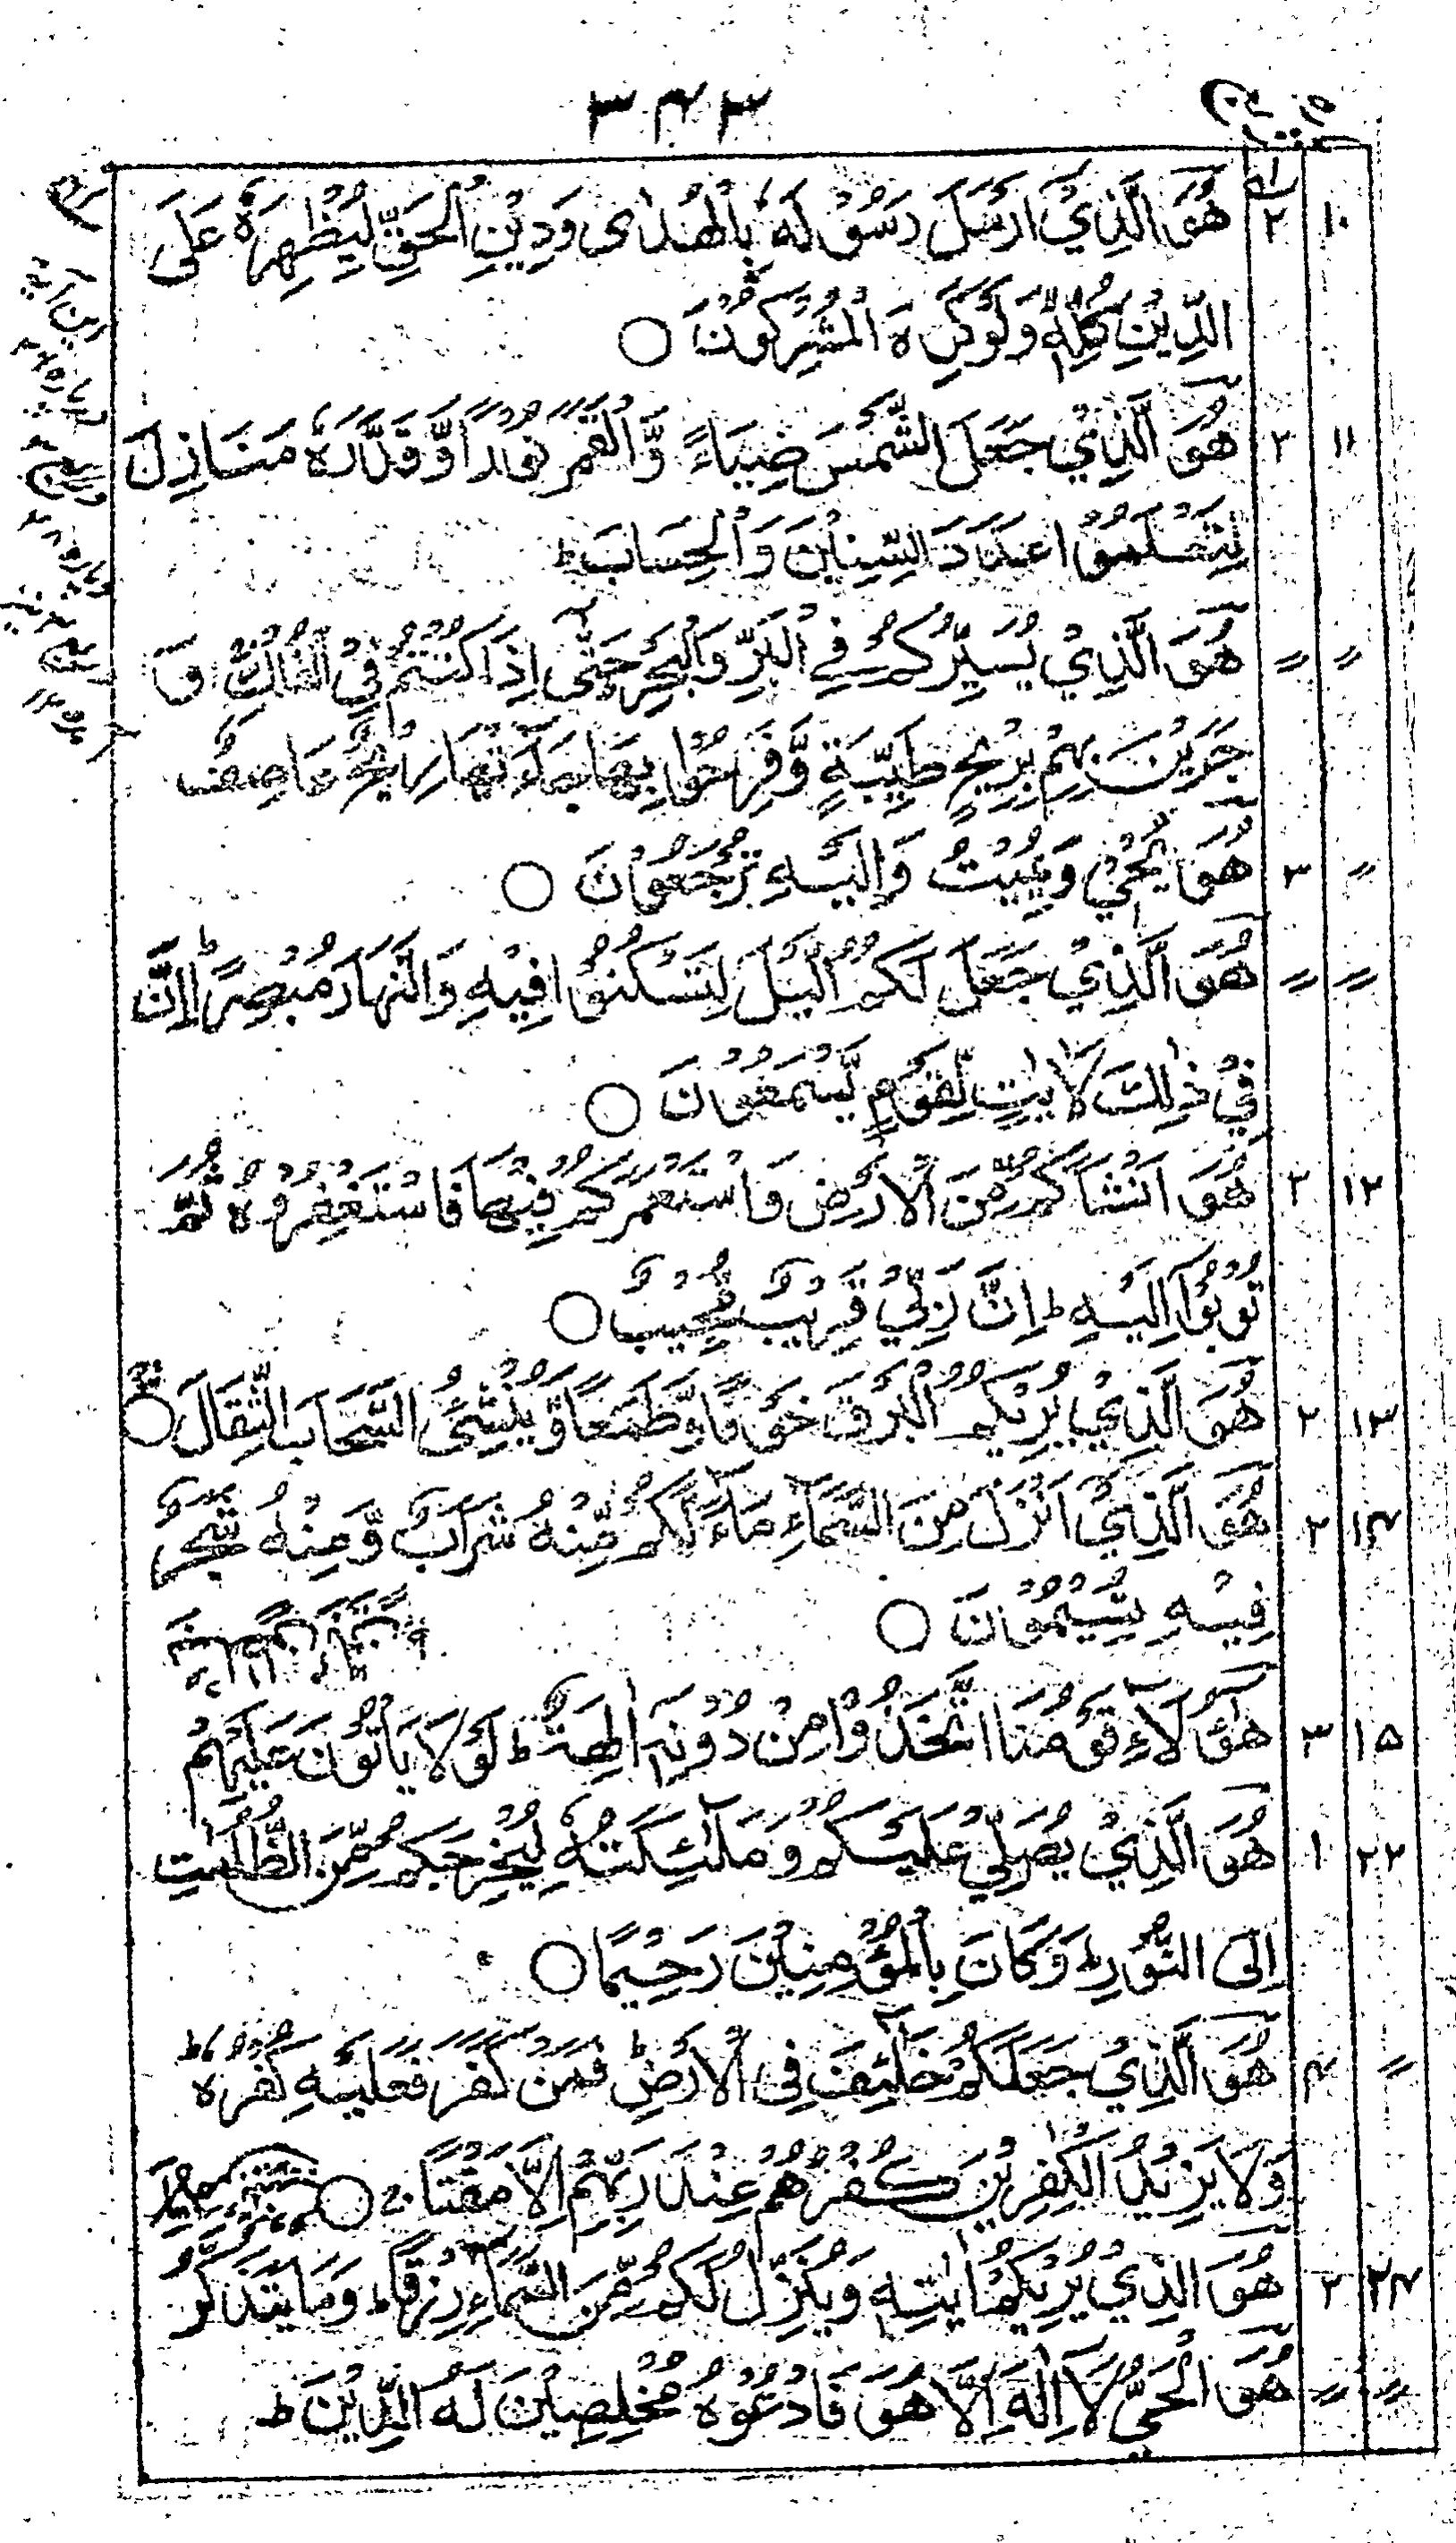 ۳۴۳
هُوَ الَّذِيْ اَرْسَلَ رَسُوْلَهٗ بِالْهُدٰى وَدِيْنِ الْحَقِّ لِيُظْهِرَهٗ عَلَى ۲ ۱۰
الدِّيْنِ كُلِّهٖ وَلَوْ كَرِهَ الْمُشْرِكُوْنَ ○
هُوَ الَّذِيْ جَعَلَ الشَّمْسَ ضِيَاءً وَّالْقَمَرَ نُوْرًا وَّقَدَّرَهٗ مَنَازِلَ ۲ ۱۱
لِتَعْلَمُوْا عَدَدَ السِّنِيْنَ وَالْحِسَابَ ط
هُوَ الَّذِيْ يُسَيِّرُكُمْ فِي الْبَرِّ وَالْبَحْرِ حَتّٰى اِذَا كُنْتُمْ فِي الْفُلْكِ وَ 〃 〃
جَرَيْنَ بِهِمْ بِرِيْحٍ طَيِّبَةٍ وَّفَرِحُوْا بِهَا جَآءَتْهَا رِيْحٌ عَاصِفٌ
هُوَ يُحْيٖ وَيُمِيْتُ وَاِلَيْهِ تُرْجَعُوْنَ ○ ۳ 〃
هُوَ الَّذِيْ جَعَلَ لَكُمُ الَّيْلَ لِتَسْكُنُوْا فِيْهِ وَالنَّهَارَ مُبْصِرًا ط اِنَّ 〃 〃
فِيْ ذٰلِكَ لَاٰيٰتٍ لِّقَوْمٍ يَّسْمَعُوْنَ ○
هُوَ اَنْشَاَكُمْ مِّنَ الْاَرْضِ وَاسْتَعْمَرَكُمْ فِيْهَا فَاسْتَغْفِرُوْهُ ثُمَّ ۲ ۱۲
تُوْبُوْآ اِلَيْهِ ط اِنَّ رَبِّيْ قَرِيْبٌ مُّجِيْبٌ ○
هُوَ الَّذِيْ يُرِيْكُمُ الْبَرْقَ خَوْفًا وَّطَمَعًا وَّيُنْشِئُ السَّحَابَ الثِّقَالَ ○ ۲ ۱۳
هُوَ الَّذِيْ اَنْزَلَ مِنَ السَّمَآءِ مَآءً لَّكُمْ مِّنْهُ شَرَابٌ وَّمِنْهُ شَجَرٌ ۲ ۱۴
فِيْهِ تُسِيْمُوْنَ ○
هٰٓؤُلَآءِ قَوْمُنَا اتَّخَذُوْا مِنْ دُوْنِهٖٓ اٰلِهَةً ط لَوْلَا يَاْتُوْنَ عَلَيْهِمْ ۳ ۱۵
هُوَ الَّذِيْ يُصَلِّيْ عَلَيْكُمْ وَمَلٰٓئِكَتُهٗ لِيُخْرِجَكُمْ مِّنَ الظُّلُمٰتِ ۱ ۲۲
اِلَى النُّوْرِ ط وَكَانَ بِالْمُؤْمِنِيْنَ رَحِيْمًا ○
هُوَ الَّذِيْ جَعَلَكُمْ خَلٰٓئِفَ فِى الْاَرْضِ ط فَمَنْ كَفَرَ فَعَلَيْهِ كُفْرُهٗ ط ۴ 〃
وَلَا يَزِيْدُ الْكٰفِرِيْنَ كُفْرُهُمْ عِنْدَ رَبِّهِمْ اِلَّا مَقْتًا ○
هُوَ الَّذِيْ يُرِيْكُمْ اٰيٰتِهٖ وَيُنَزِّلُ لَكُمْ مِّنَ السَّمَآءِ رِزْقًا ط وَمَا يَتَذَكَّرُ ۲ ۲۴
هُوَ الْحَيُّ لَآ اِلٰهَ اِلَّا هُوَ فَادْعُوْهُ مُخْلِصِيْنَ لَهُ الدِّيْنَ ط 〃 〃